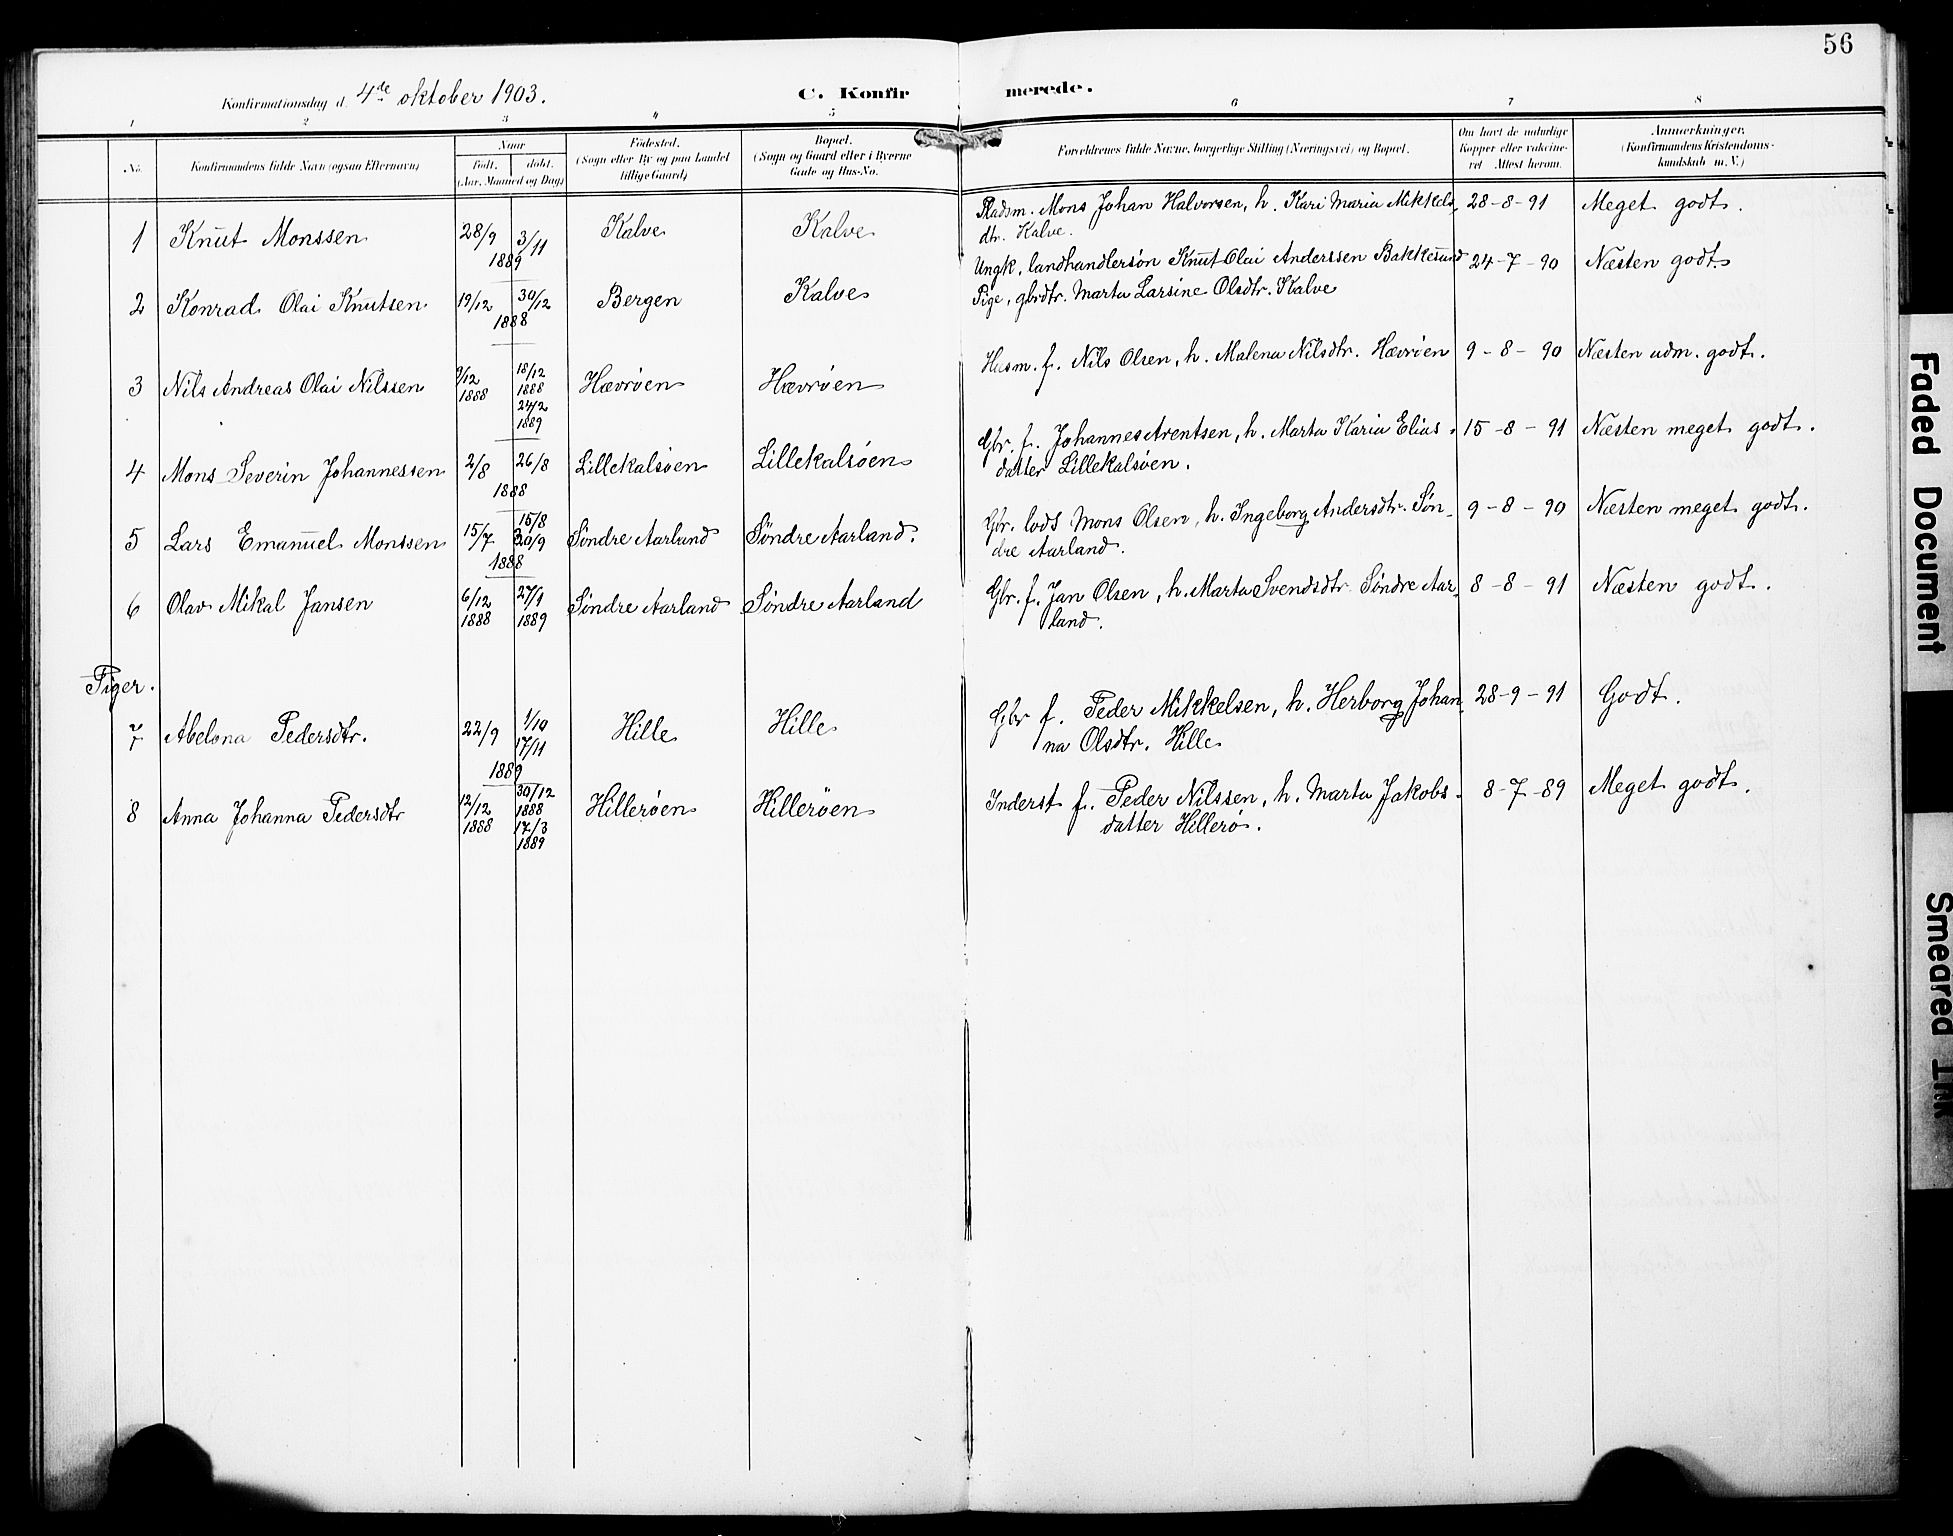 56
Konfirmationsdag d. 4de oktober 1903.
C. Konfirmerede.
1 2 3 4 5 6 7 8
No.
Konfirmandens fulde Navn (ogsaa Efternavn)
Naar
født. døbt.
(Aar, Maaned og Dag)
Fødested.
(Sogn eller By og paa Landet
tillige Gaard)
Bopæl.
(Sogn og Gaard eller i Byerne
Gade og Hus-No.
Forældrenes fulde Navne, borgerlige Stilling (Næringsvei) og Bopæl.
Om havt de naturlige
Kopper eller vaccine-
ret Attest herom.
Anmærkninger.
(Konfirmandens Kristendoms-
kundskab m. V.)
1 Knut Monssen 28/9 3/11 1889 Kalve Kalve Pladsm. Mons Johan Halvorsen, h. Kari Maria Mikkels- 28-8-91 Meget godt.
dtr. Kalve.
2 Konrad Olai Knutsen 19/12 30/12 1888 Bergen Kalve Ungk, landhandlersøn Knut Olai Anderssen Bakkesund 24-7-90 Næsten godt.
Pige, gbrdtr. Marta Larsine Olsdtr. Kalve
3 Nils Andreas Olai Nilssen 9/12 1888 18/12 1888 24/2 1889 Hævrøen Hævrøen Husm. f. Nils Olsen, h. Malena Nilsdtr. Hævrøen 9-8-90 Næsten udm. godt.
4 Mons Severin Johannessen 2/8 26/8 1888 Lillekalsøen Lillekalsøen Gbr. f. Johannes Arentsen, h. Marta Karia Elias- 15-8-91 Næsten meget godt.
datter Lillekalsøen.
5 Lars Emanuel Monssen 15/7 15/8 30/9 1888 Søndre Aarland Søndre Aarland. Gbr. lods Mons Olsen, h. Ingeborg Andersdtr. Søn- 9-8-90 Næsten meget godt.
dre Aarland.
6 Olav Mikal Jansen 6/12 1888 27/1 1889 Søndre Aarland Søndre Aarland Gbr. f. Jan Olsen, h. Marta Svendsdtr. Søndre Aar- 8-8-91 Næsten godt.
land.
Piger.
7 Abelona Pedersdtr. 22/9 1/10 17/11 1889 Hille Hille Gbr f. Peder Mikkelsen, h. Herborg Johan- 28-9-91 Godt.
na Olsdtr. Hille
8 Anna Johanna Pedersdtr 12/12 1888 30/12 1888 17/3 1889 Hillerøen Hillerøen Inderst f. Peder Nilssen, h. Marta Jakobs- 8-7-89 Meget godt.
datter Hillerø.
Faded Document
Smeared Ink